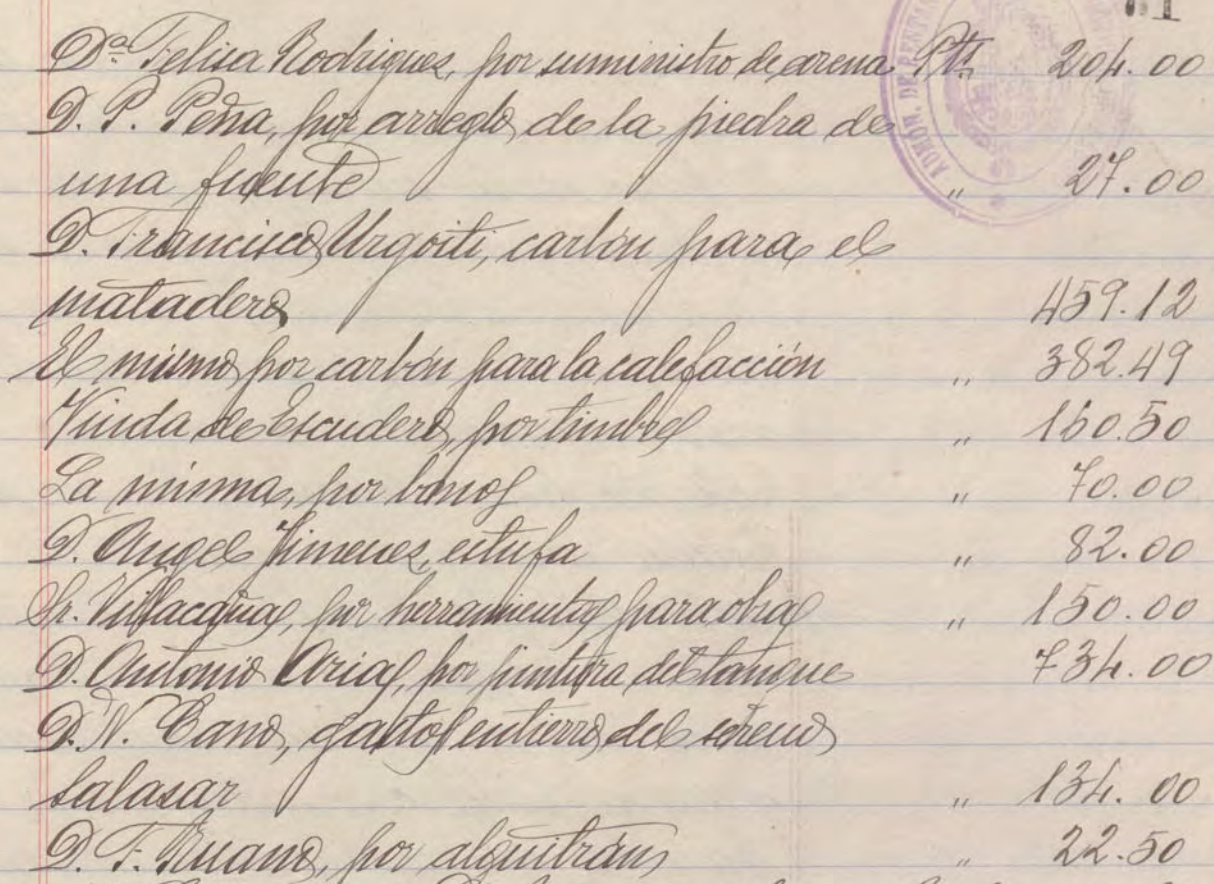 Dª Felisa Rodrigues, por suministro de arena Pts 204.00
D. P. Peña, por arreglo de la piedra de
una fuente " 27.00
D. Francisco Urgoiti, carbón para el
matadero 459.12
El mismo por carbón para la calefacción " 382.49
Viuda de Escudero, por timbres " 150.50
La misma, por bonos " 70.00
D. Angel Jimenes, estufa " 82.00
Sr. Villacañas, por herramientas para obras " 150.00
D. Antonio Arias, por pintura del tanque 734.00
D. N. Cano, gastos entierro del sereno
Salasar " 134.00
D. F. Ruano, por alquitrán " 22.50
ADMÓN. DE RENTAS